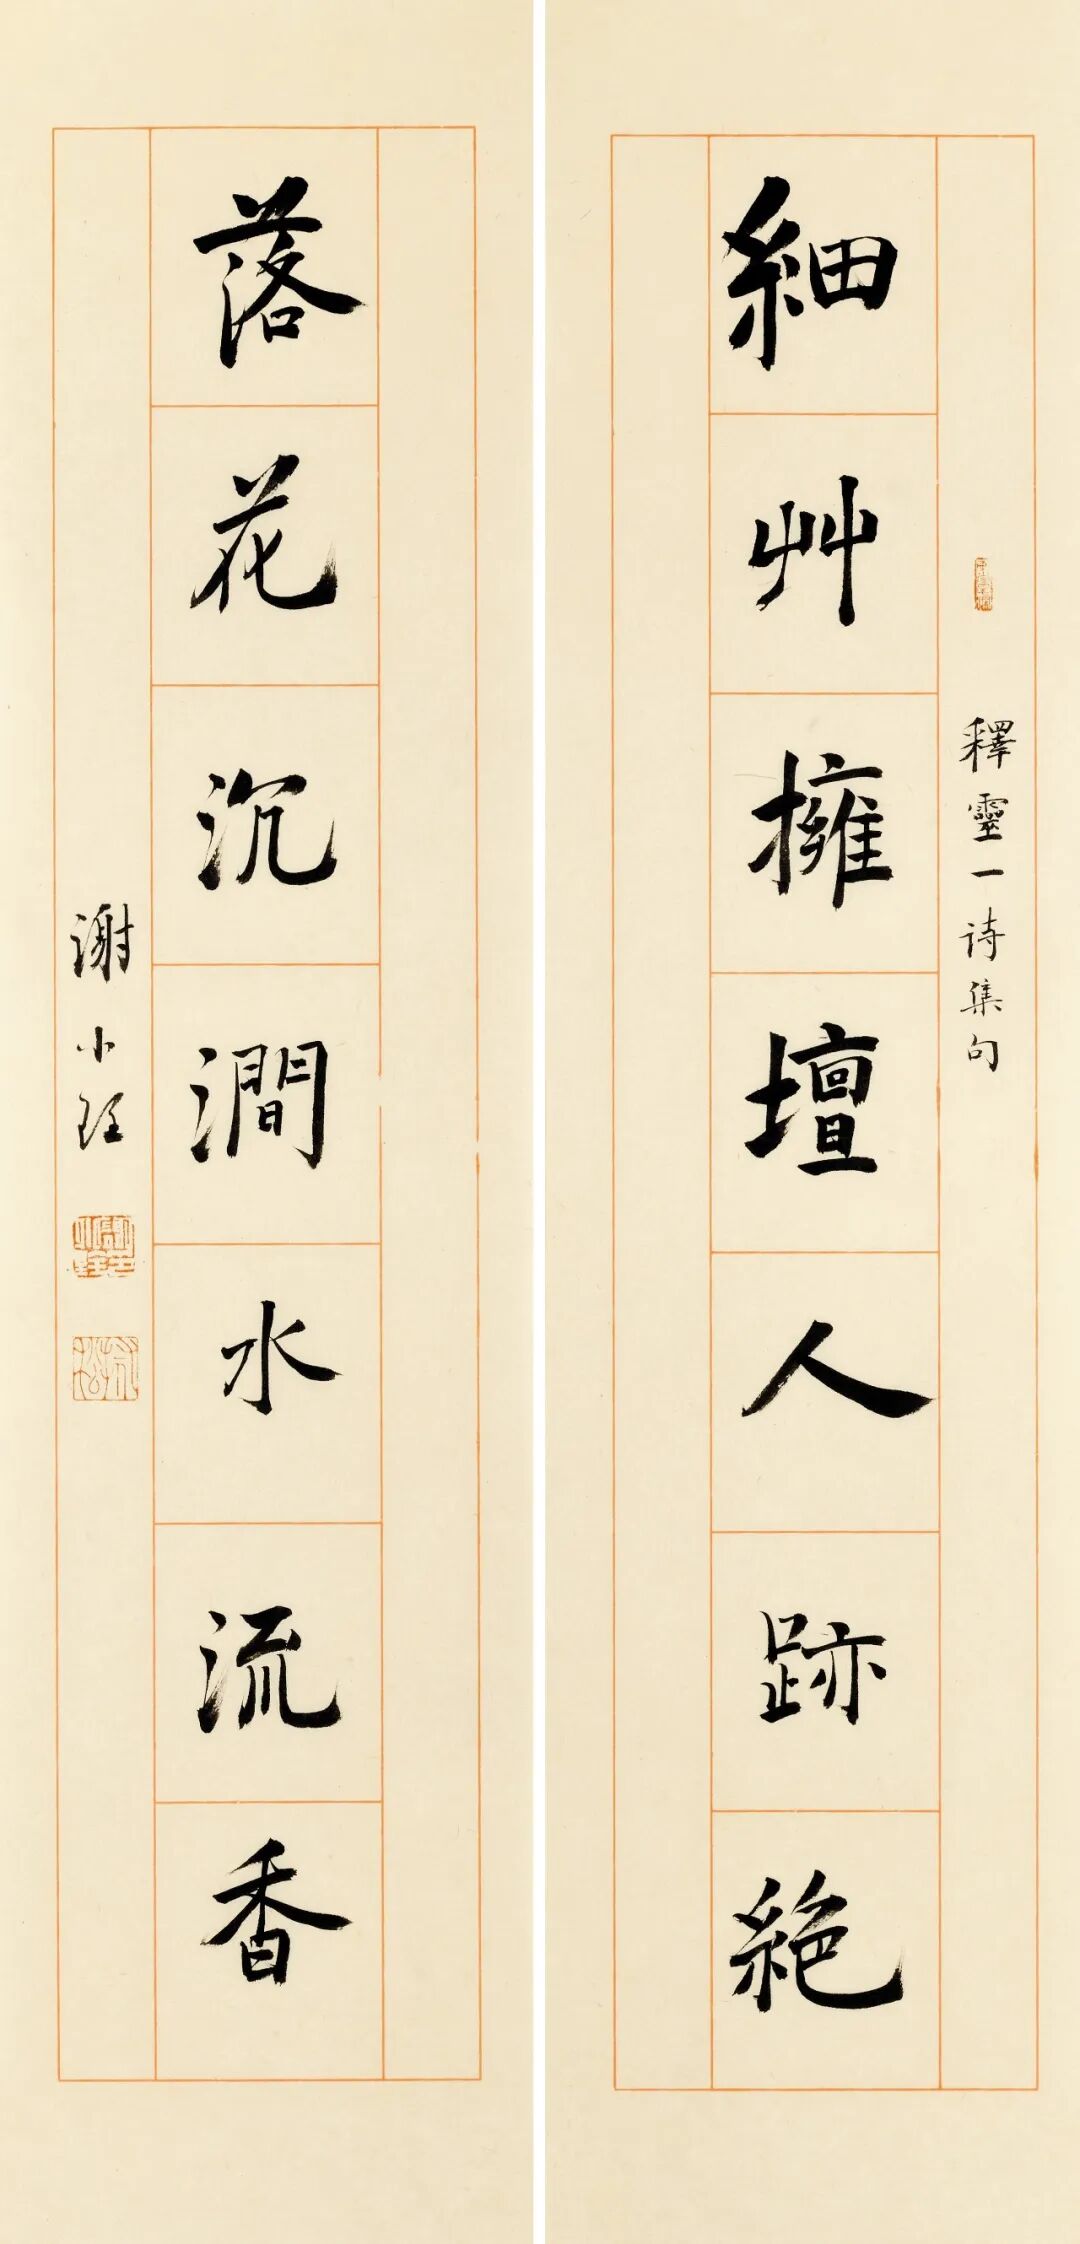 細艸擁壇人跡絕
釋靈一诗集句
落花沉澗水流香
謝小